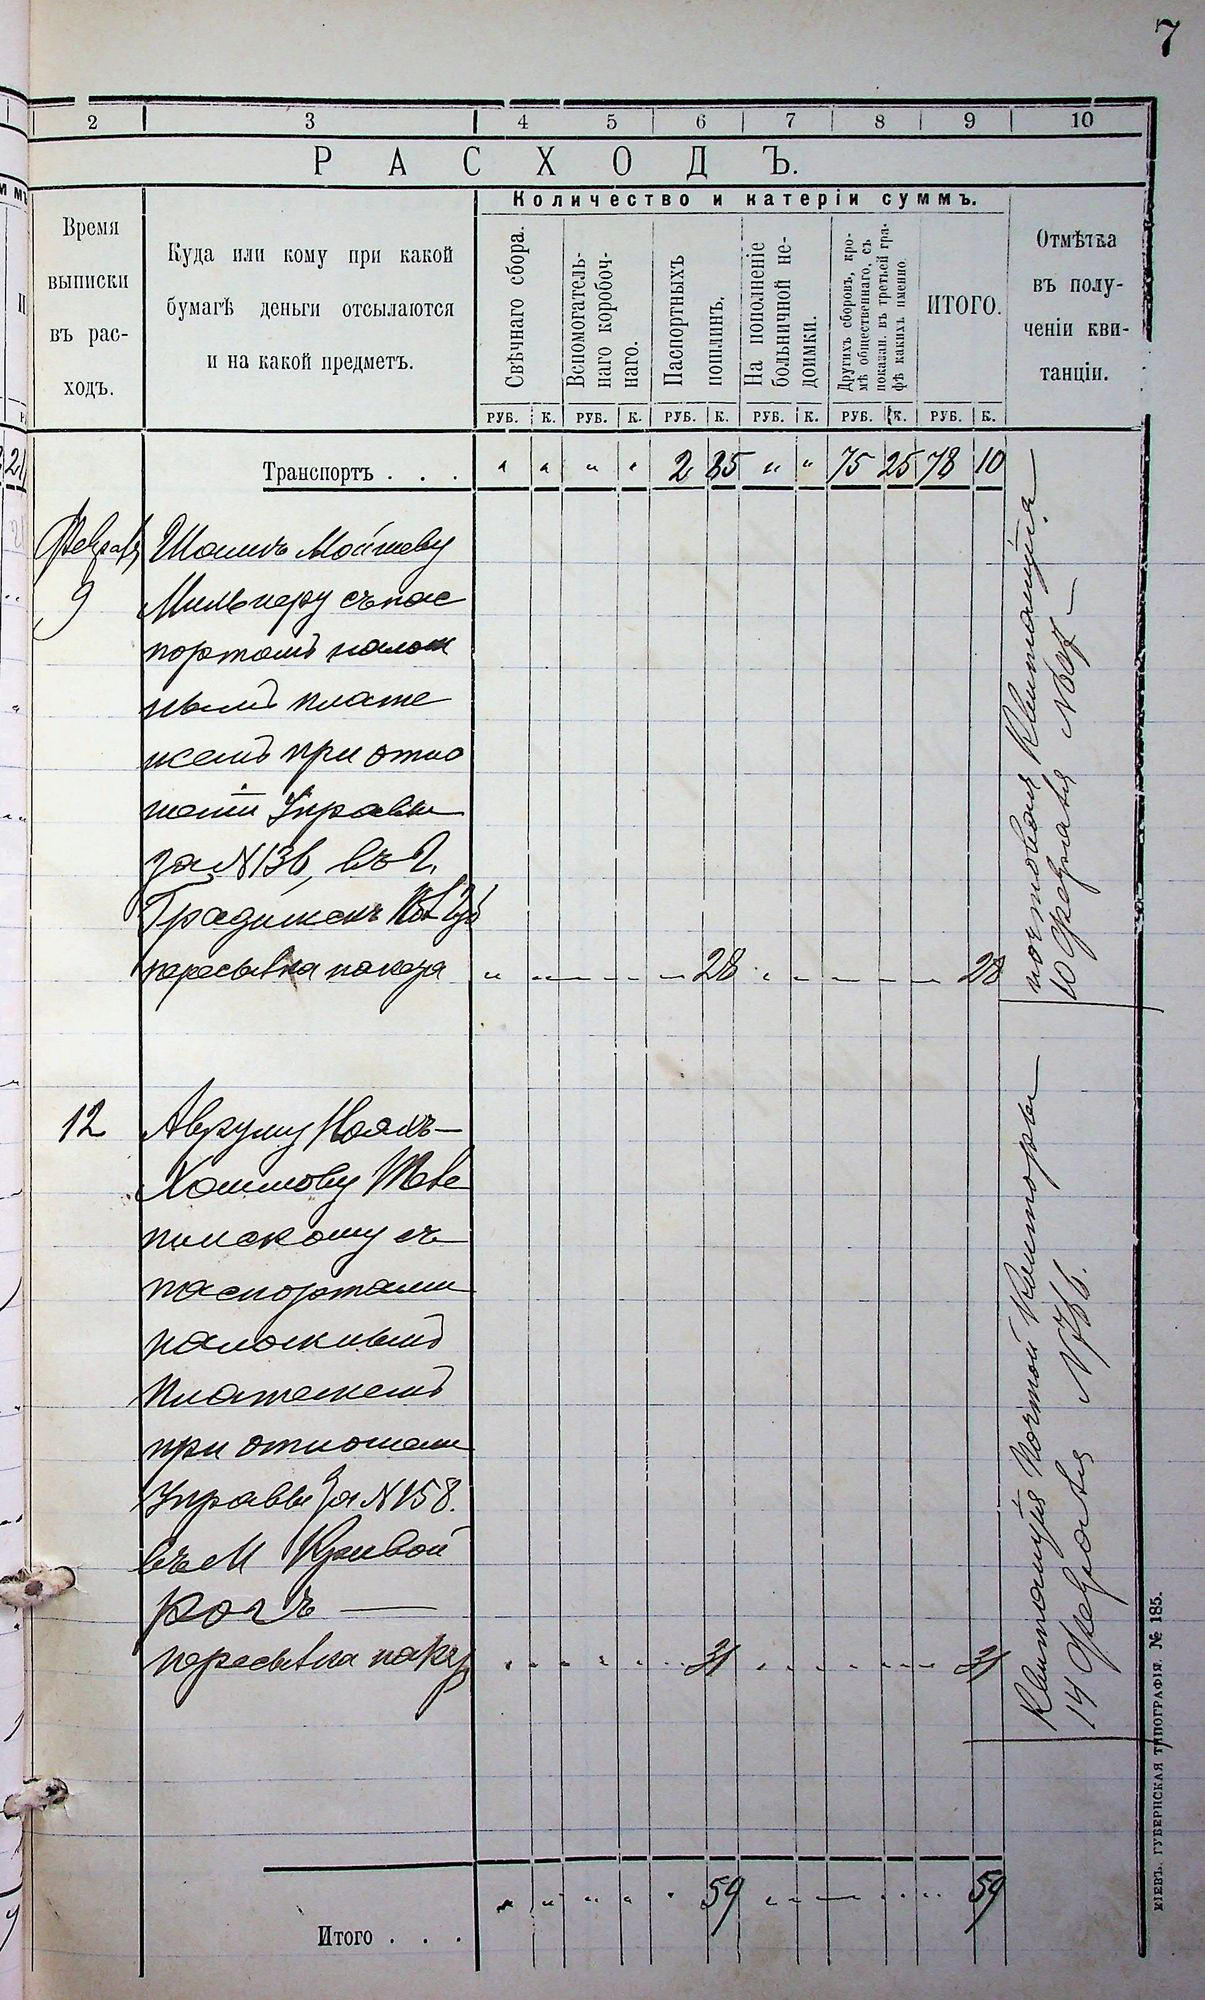 7
2 3 4 5 6 7 8 9 10
РАСХОДЪ.
Время
выписки
въ рас-
ходъ.
Куда или кому при какой
бумагѣ деньги отсылаются
и на какой предметъ.
Количество и катеріи суммъ.
Свѣчнаго сбора.
Вспомогатель-
наго коробоч-
наго.
Паспортныхъ
пошлинъ.
На пополненіе
больничной не-
доимки.
Другихъ сборовъ, кро-
мѣ общественнаго, съ
показан. въ третьей гра-
фѣ какихъ именно.
ИТОГО.
Отмѣтка
въ полу-
ченіи кви-
танціи.
РУБ. К. РУБ. К. РУБ. К. РУБ. К. РУБ. К. РУБ. К.
Транспортъ . . . " " " " 2 85 " " 75 25 78 10
Февраля
9
Мошеву
Мильнеру съ пас
портомъ налож
нымъ плате
жемъ при отно
шеніи Управы
за №136, въ г.
пересылка пакета 28 28
почтовая Квитанція
10 Февраля
12
Авруму
Хаимову
пинскому съ
паспортами
наложнымъ
Платежемъ
при отношеніи
Управы за №158.
въ М Кривой
Рогъ —
пересылка 31 31
Квитанція Почтой Конторы
14 Февраля
59 59
Итого . . .
КІЕВЪ. ГУБЕРНСКАЯ ТИПОГРАФІЯ. № 185.